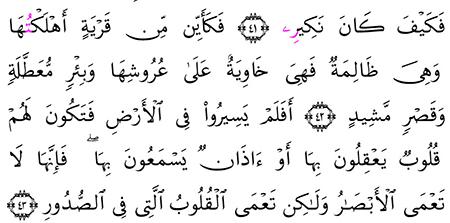 فَكَيْفَ كَانَ نَكِيرِۦ ٤١ فَكَأَيِّن مِّن قَرْيَةٍ أَهْلَكْتُهَا
وَهِيَ ظَالِمَةٌ فَهِيَ خَاوِيَةٌ عَلَىٰ عُرُوشِهَا وَبِئْرٍ مُّعَطَّلَةٍ
وَقَصْرٍ مَّشِيدٍ ٤٢ أَفَلَمْ يَسِيرُوا۟ فِي الْأَرْضِ فَتَكُونَ لَهُمْ
قُلُوبٌ يَعْقِلُونَ بِهَا أَوْ ءَاذَانٌ يَسْمَعُونَ بِهَا ۖ فَإِنَّهَا لَا
تَعْمَى الْأَبْصَٰرُ وَلَٰكِن تَعْمَى الْقُلُوبُ الَّتِي فِي الصُّدُورِ ٤٣